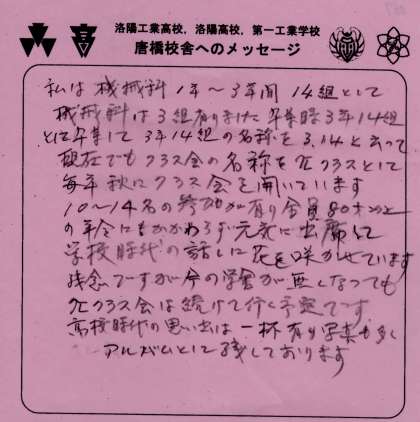 洛陽工業高校，洛陽高校，第一工業学校
唐橋校舎へのメッセージ
私は 機械科 1年〜3年間 14組として
機械科は3組有りました 卒業時3年14組
として卒業して 3年14組の名称を 3.14と云って
現在でもクラス会の名称をπクラスとして
毎年秋にクラス会を開いています
10〜14名の参加が有り全員80才以上
の年令にもかかわらず元気に出席して
学校時代の話しに花を咲かせています
残念ですが今の学舎が無しなっても
πクラス会は続けて行く予定です
高校時代の思い出は一杯有り写真も多く
アルバムとして残しております